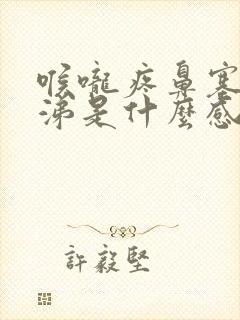 喉嚨疼鼻塞
涕是什麼感
許毅堅